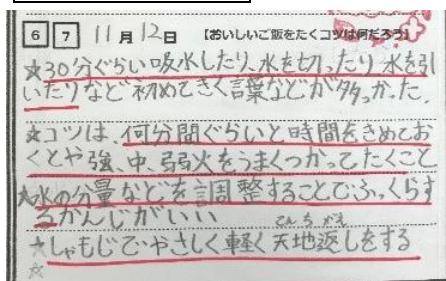 6 7 11月12日 【おいしいご飯をたくコツは何だろう】
☆30分ぐらい吸水したり、水を切ったり水を引
いたりなど初めてきく言葉などが多かった。
☆コツは、何分間ぐらいと時間をきめてお
くとや強、中、弱火をうまくつかってたくこと
☆水の分量などを調整することでふっくらす
るかんじがいい
てんちがえ
☆しゃもじでやさしく軽く天地返しをする
☆